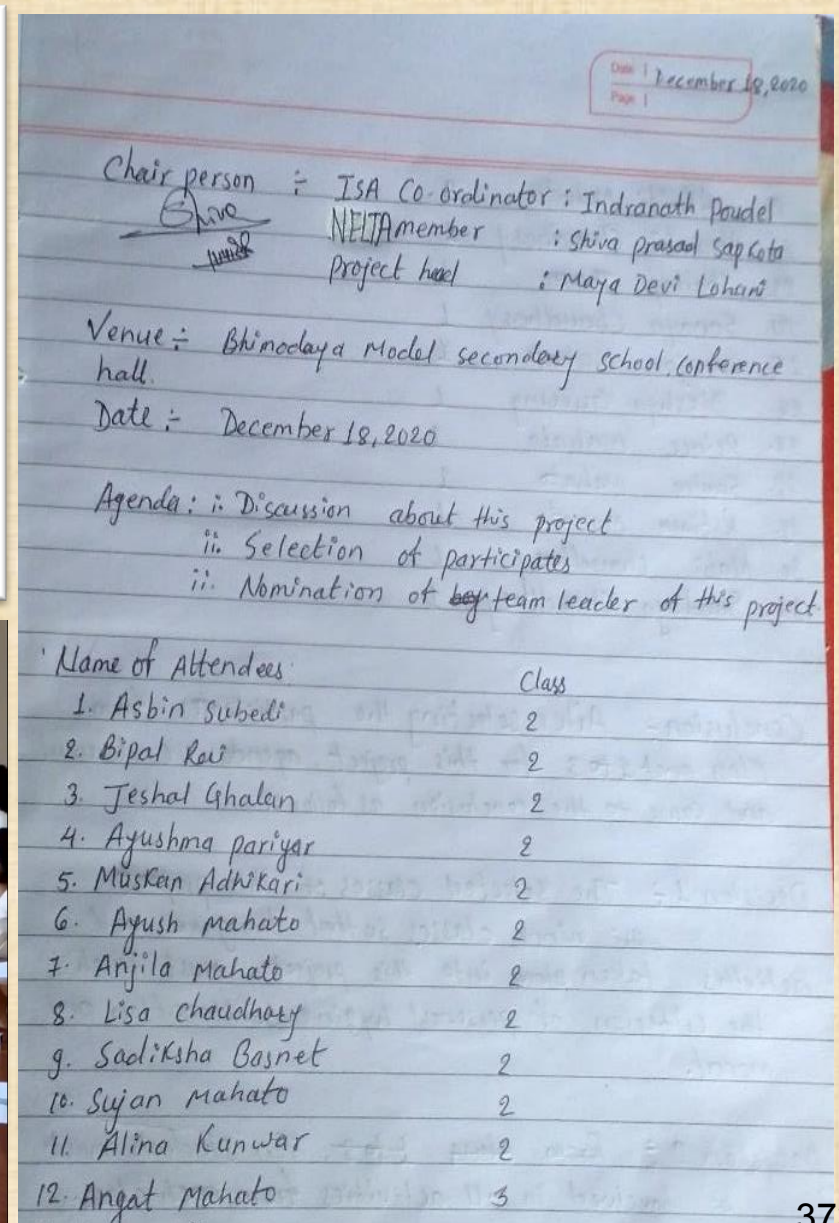 Date | December 18, 2020
Page |
Chair person ÷ ISA Co-ordinator : Indranath Poudel
Shiva NELTA member : Shiva prasad Sapkota
project head : Maya Devi Lohani
Venue ÷ Bhimodaya Model secondary school, conference
hall.
Date ÷ December 18, 2020
Agenda : i. Discussion about this project
ii. Selection of participates
ii. Nomination of team leader of this project.
Name of Attendees Class
1. Asbin Subedi 2
2. Bipal Rai 2
3. Jeshal Ghalan 2
4. Ayushma pariyar 2
5. Muskan Adhikari 2
6. Ayush Mahato 2
7. Anjila Mahato 2
8. Lisa chaudhary 2
9. Sadiksha Basnet 2
10. Sujan Mahato 2
11. Alina Kunwar 2
12. Angat Mahato 3
37